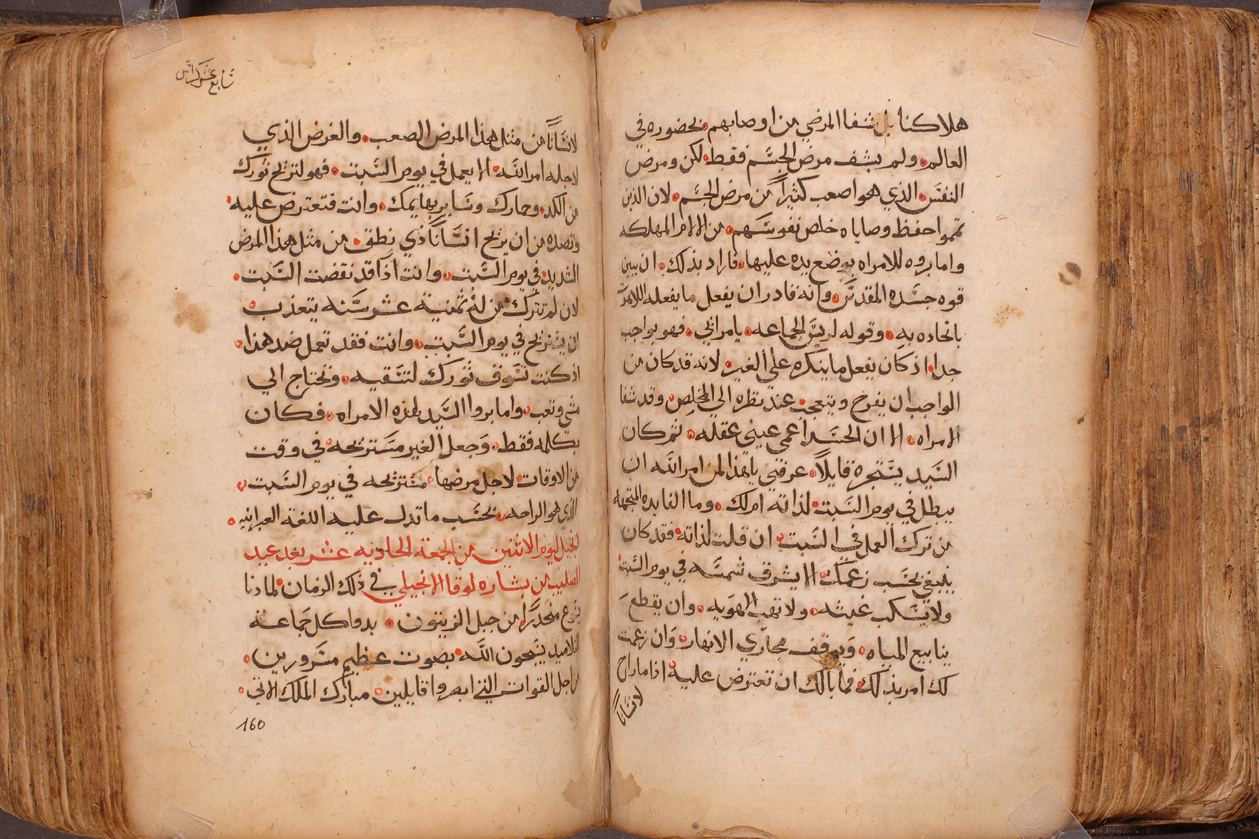 هلاكنا بل شفا المرضي من اوصابهم بحضوره في
العالم ولم يشف مرض الجسم فقط لكن ومرض
النفس الذي هوا صعب كثيراً من مرض الجسم لان الذين
تمموا حفظ وصاياه خلص نفوسهم من الالام المهلكه
واما بروه للامراه بوضع يده عليها فاراد بذلك ان يبين
قوه جسده المقدس وانه قادر ان يفعل ما يفعله اللاهوت
باتحاده به وقوله لريس الجماعه يامرائي فهو بواجب
جدا اذ كان يفعل ما ينكره علي الغير لانه قد كان من
الواجب ان يفرح ويتعجب عند نظره الي المخلص وقد شفا
الامراه الا ان الحسد اعمي عيني عقله ثم كان
السيد ينتجره قايلاً عرفني ياهذا لمن امر الله ان
يبطل في يوم السبت لذاته امر لك وما الفايده المتجهه
من ترك العمل في السبت ان قلت لذاته فقد كان
ينبغي بحسب زعمك الا يشرق شمسه في يوم السبت
ولا يسكب غيثه ولا تهب الهويه وان يقطع
ينابيع المياه ويوقف مجاري الانهار وان زعمت
لك امر بذلك فما بالك ان تعترض عليه اذا ما راح
لانساناً
تابع
لانساناً من مثل هذا المرض الصعب والغرض الذي
لاجله امر الله الا يعمل في يوم السبت فهو لتريح ثورك
من الكد وحمارك وساير بهايمك وانت فتعترض عليه
وتصده من ان يريح انساناً ذي نطق من مثل هذا المرض
الشديد في يوم السبت وانت اذا قد نقضت السبت
لان لم تترك من له ثمنية عشر سنه يتعذب
ان يستريح في يوم السبت وانت فقد تعمل ضد هذا
اذ كنت تسوق ثورك لتسقيه وتحتاج الي
مشي وتعب واما بروا السيد لهذه الامراه فكان
بكلمه فقط وجعل الغير مستريحه في وقت
من الاوقات لاجل مرضها مستريحه في يوم السبت
الذي هو الراحه بحسب ما تدل عليه اللغة العبرانيه
انجيل ليوم الاثنين من الجمعة الحاديه عشر بعد عيد
الصليب من بشاره لوقا الانجيلي في ذلك الزمان لما دنا
يسوع منحدراً من جبل الزيتون بدوا كل جماعة
التلاميد يسبحون الله بصوت عظيم مسرورين
من اجل القوات التي ابصروا قايلين مبارك الملك الاتي
160